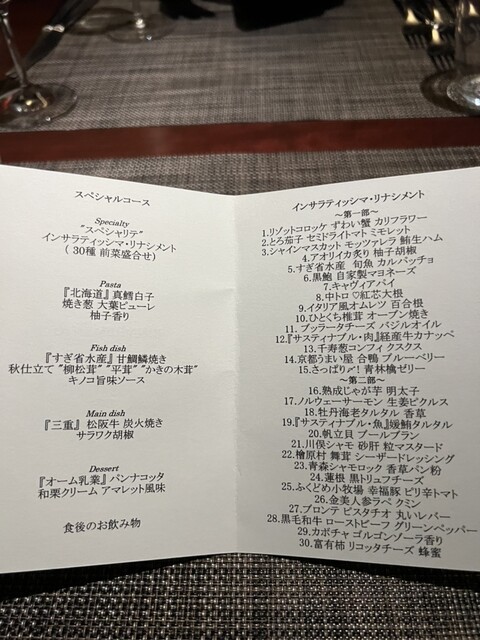 スペシャルコース
Specialty
"スペシャリテ"
インサラティッシマ・リナシメント
( 30種 前菜盛合せ)
Pasta
『北海道』真鱈白子
焼き葱 大葉ピューレ
柚子香り
Fish dish
『すぎ省水産』甘鯛鱗焼き
秋仕立て "柳松茸" "平茸" "かきの木茸"
キノコ旨味ソース
Main dish
『三重』 松阪牛 炭火焼き
サラワク胡椒
Dessert
『オーム乳業』パンナコッタ
和栗クリーム アマレット風味
食後のお飲み物
インサラティッシマ・リナシメント
～第一部～
1.リゾットコロッケ ずわい蟹 カリフラワー
2.とろ茄子 セミドライトマト ミモレット
3.シャインマスカット モッツァレラ 鮪生ハム
4.アオリイカ炙り 柚子胡椒
5.すぎ省水産 旬魚 カルパッチョ
6.黒鮑 自家製マヨネーズ
7.キャヴィアパイ
8.中トロ♡紅芯大根
9.イタリア風オムレツ 百合根
10.ひとくち椎茸 オーブン焼き
11. ブッラータチーズ バジルオイル
12.『サスティナブル・肉』経産牛カナッペ
13.千寿葱コンフィ クスクス
14.京都うまい屋 合鴨 ブルーベリー
15.さっぱり〆! 青林檎ゼリー
～第二部～
16.熟成じゃが芋 明太子
17.ノルウェーサーモン 生姜ピクルス
18.牡丹海老タルタル 香草
19.『サスティナブル・魚』媛鮪タルタル
20.帆立貝 ブールブラン
21.川俣シャモ 砂肝 粒マスタード
22.檜原村 舞茸 シーザードレッシング
23.青森シャモロック 香草パン粉
24.蓮根 黒トリュフチーズ
25.ふくどめ小牧場 幸福豚 ピリ辛トマト
26.金美人参ラペ クミン
27.ブロンテ ピスタチオ 丸いレバー
28.黒毛和牛 ローストビーフ グリーンペッパー
29.カボチャ ゴルゴンゾーラ香り
30.富有柿 リコッタチーズ 蜂蜜